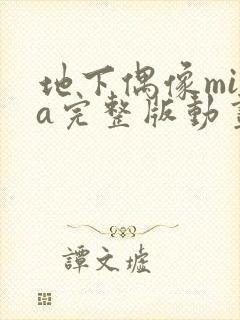 地下偶像mi
a完整版動
譚文墟